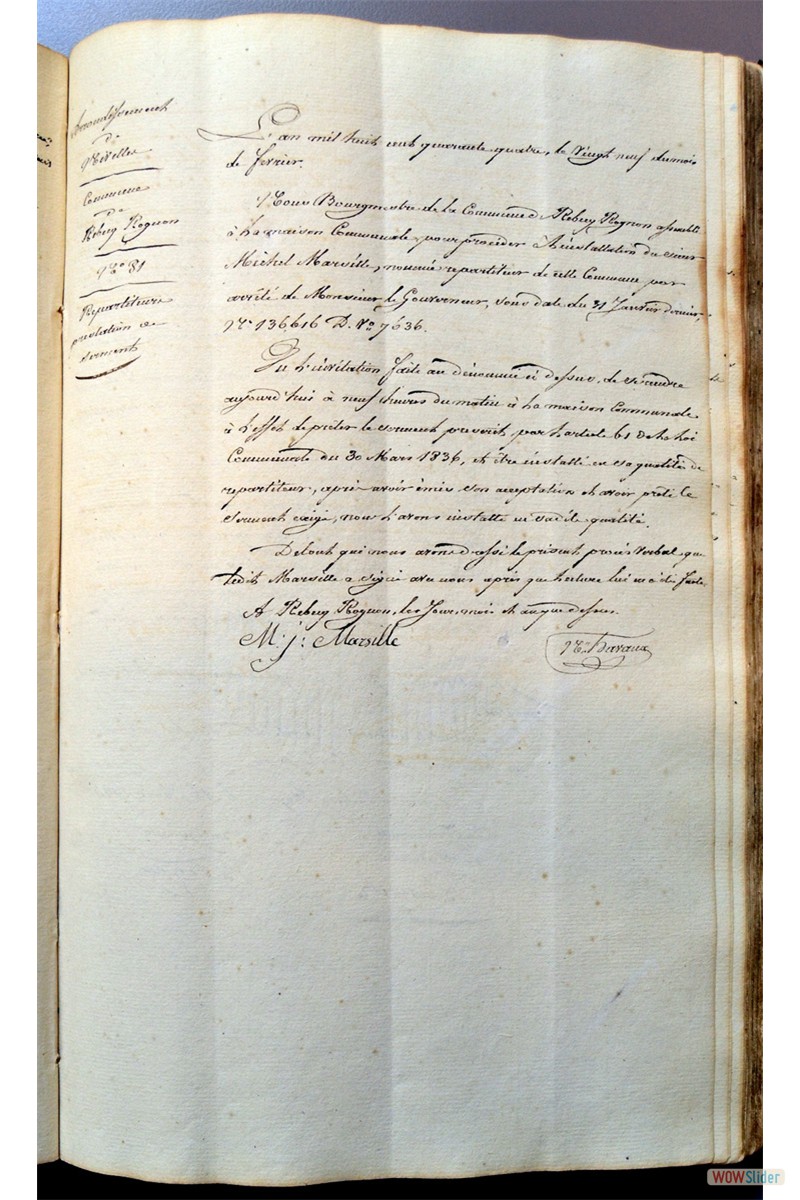 Arrondissement
de
Nivelles
Commune
de
Rebecq Rognon
N° 81
Répartiteurs
prestation de
serment
L'an mil huit cent quarante quatre, le vingt neuf du mois
de février.
Nous Bourgmestre de la Commune de Rebecq Rognon assemblé
à la maison Communale, pour procéder à l'installation du sieur
Michel Marsille, nommé répartiteur de cette Commune par
arrêté de Monsieur le Gouverneur, sous date du 31 Janvier dernier,
N° 136616 D. N° 7636.
Vu l'invitation faite au dénommé ci dessus, de se rendre
aujourd'hui à neuf heures du matin à la maison Communale
à l'effet de prêter le serment prescrit, par l'article 61 de la loi
Communale du 30 Mars 1836, et être installé en sa qualité de
répartiteur, après avoir émis son acceptation et avoir prêté le
serment exigé, nous l'avons installé en sadite qualité.
De tout quoi nous avons dressé le présent procès verbal que
ledit Marsille a signé avec nous après que lecture lui en a été faite.
A Rebecq Rognon, les Jour, mois et an que dessus.
M: j: Marsille
WOWSlider